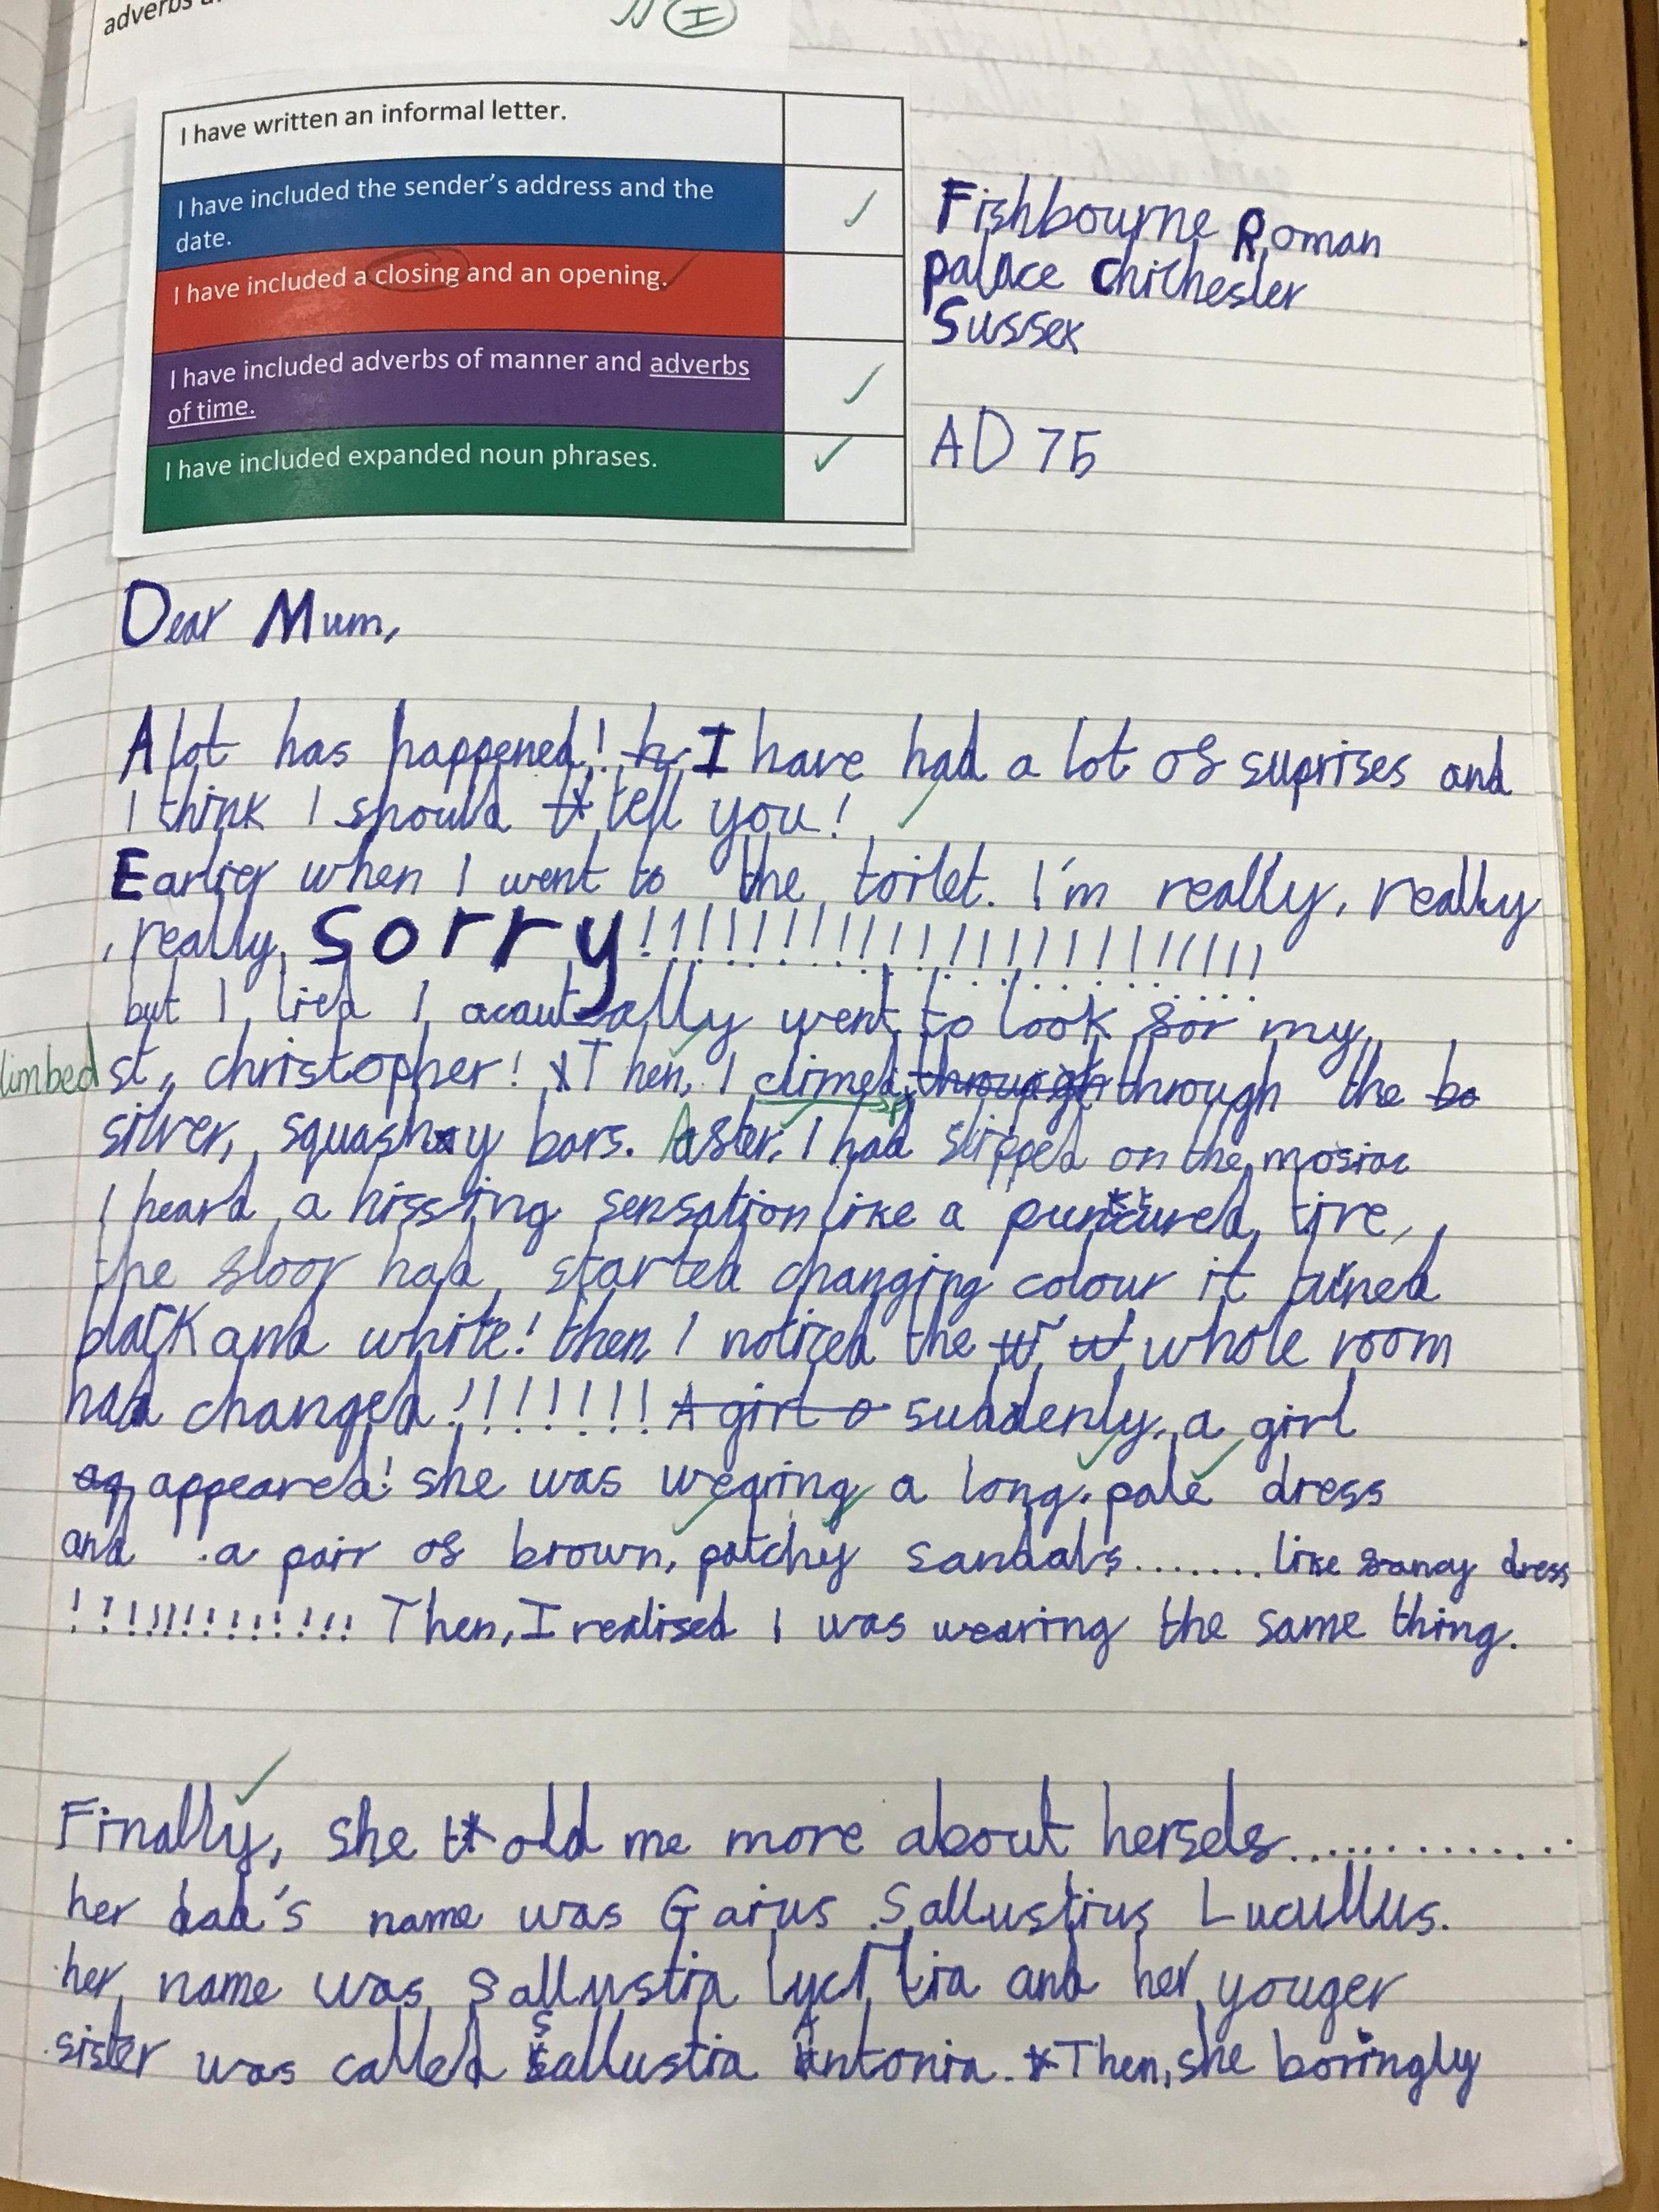 adverbs
I
I have written an informal letter.
I have included the sender's address and the
date.
I have included a closing and an opening.
I have included adverbs of manner and adverbs
of time.
I have included expanded noun phrases.
Fishbourne Roman
palace chichester
Sussex
AD 75
Dear Mum,
A lot has happened! I have had a lot of suprises and
I think I should tell you!
Earlier when I went to the toilet. I'm really, really
, really, sorry!!!!!!!!!!!!!!!!!!!!!!!!
but I lied I acautually went to look for my
limbed
st, christopher! Then, I climed through the
silver, squashy bars. After, I had slipped on the mosiac
I heard a hissing sensation like a punctured tire,
the floor had started changing colour it turned
black and white! then, I noticed the whole room
had changed!!!!!!!! suddenly, a girl
appeared! she was wearing a long, pale dress
and a pair of brown, patchy sandals........like fancy dress
!!!!!!!!!!!!!! Then, I realised I was wearing the same thing.
Finally, she told me more about herself..............
her dad's name was Gaius Sallustius Lucullus.
her name was Sallustia and her youger
sister was called Sallustia Antonia. Then, she boringly